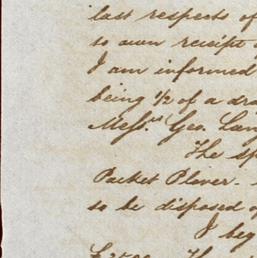 last respects of
so own receipt
I am informed
being 1/2 of a dra
Mess.rs Geo. Lan
The sp
Packet Plover.
so be disposed of
I beg